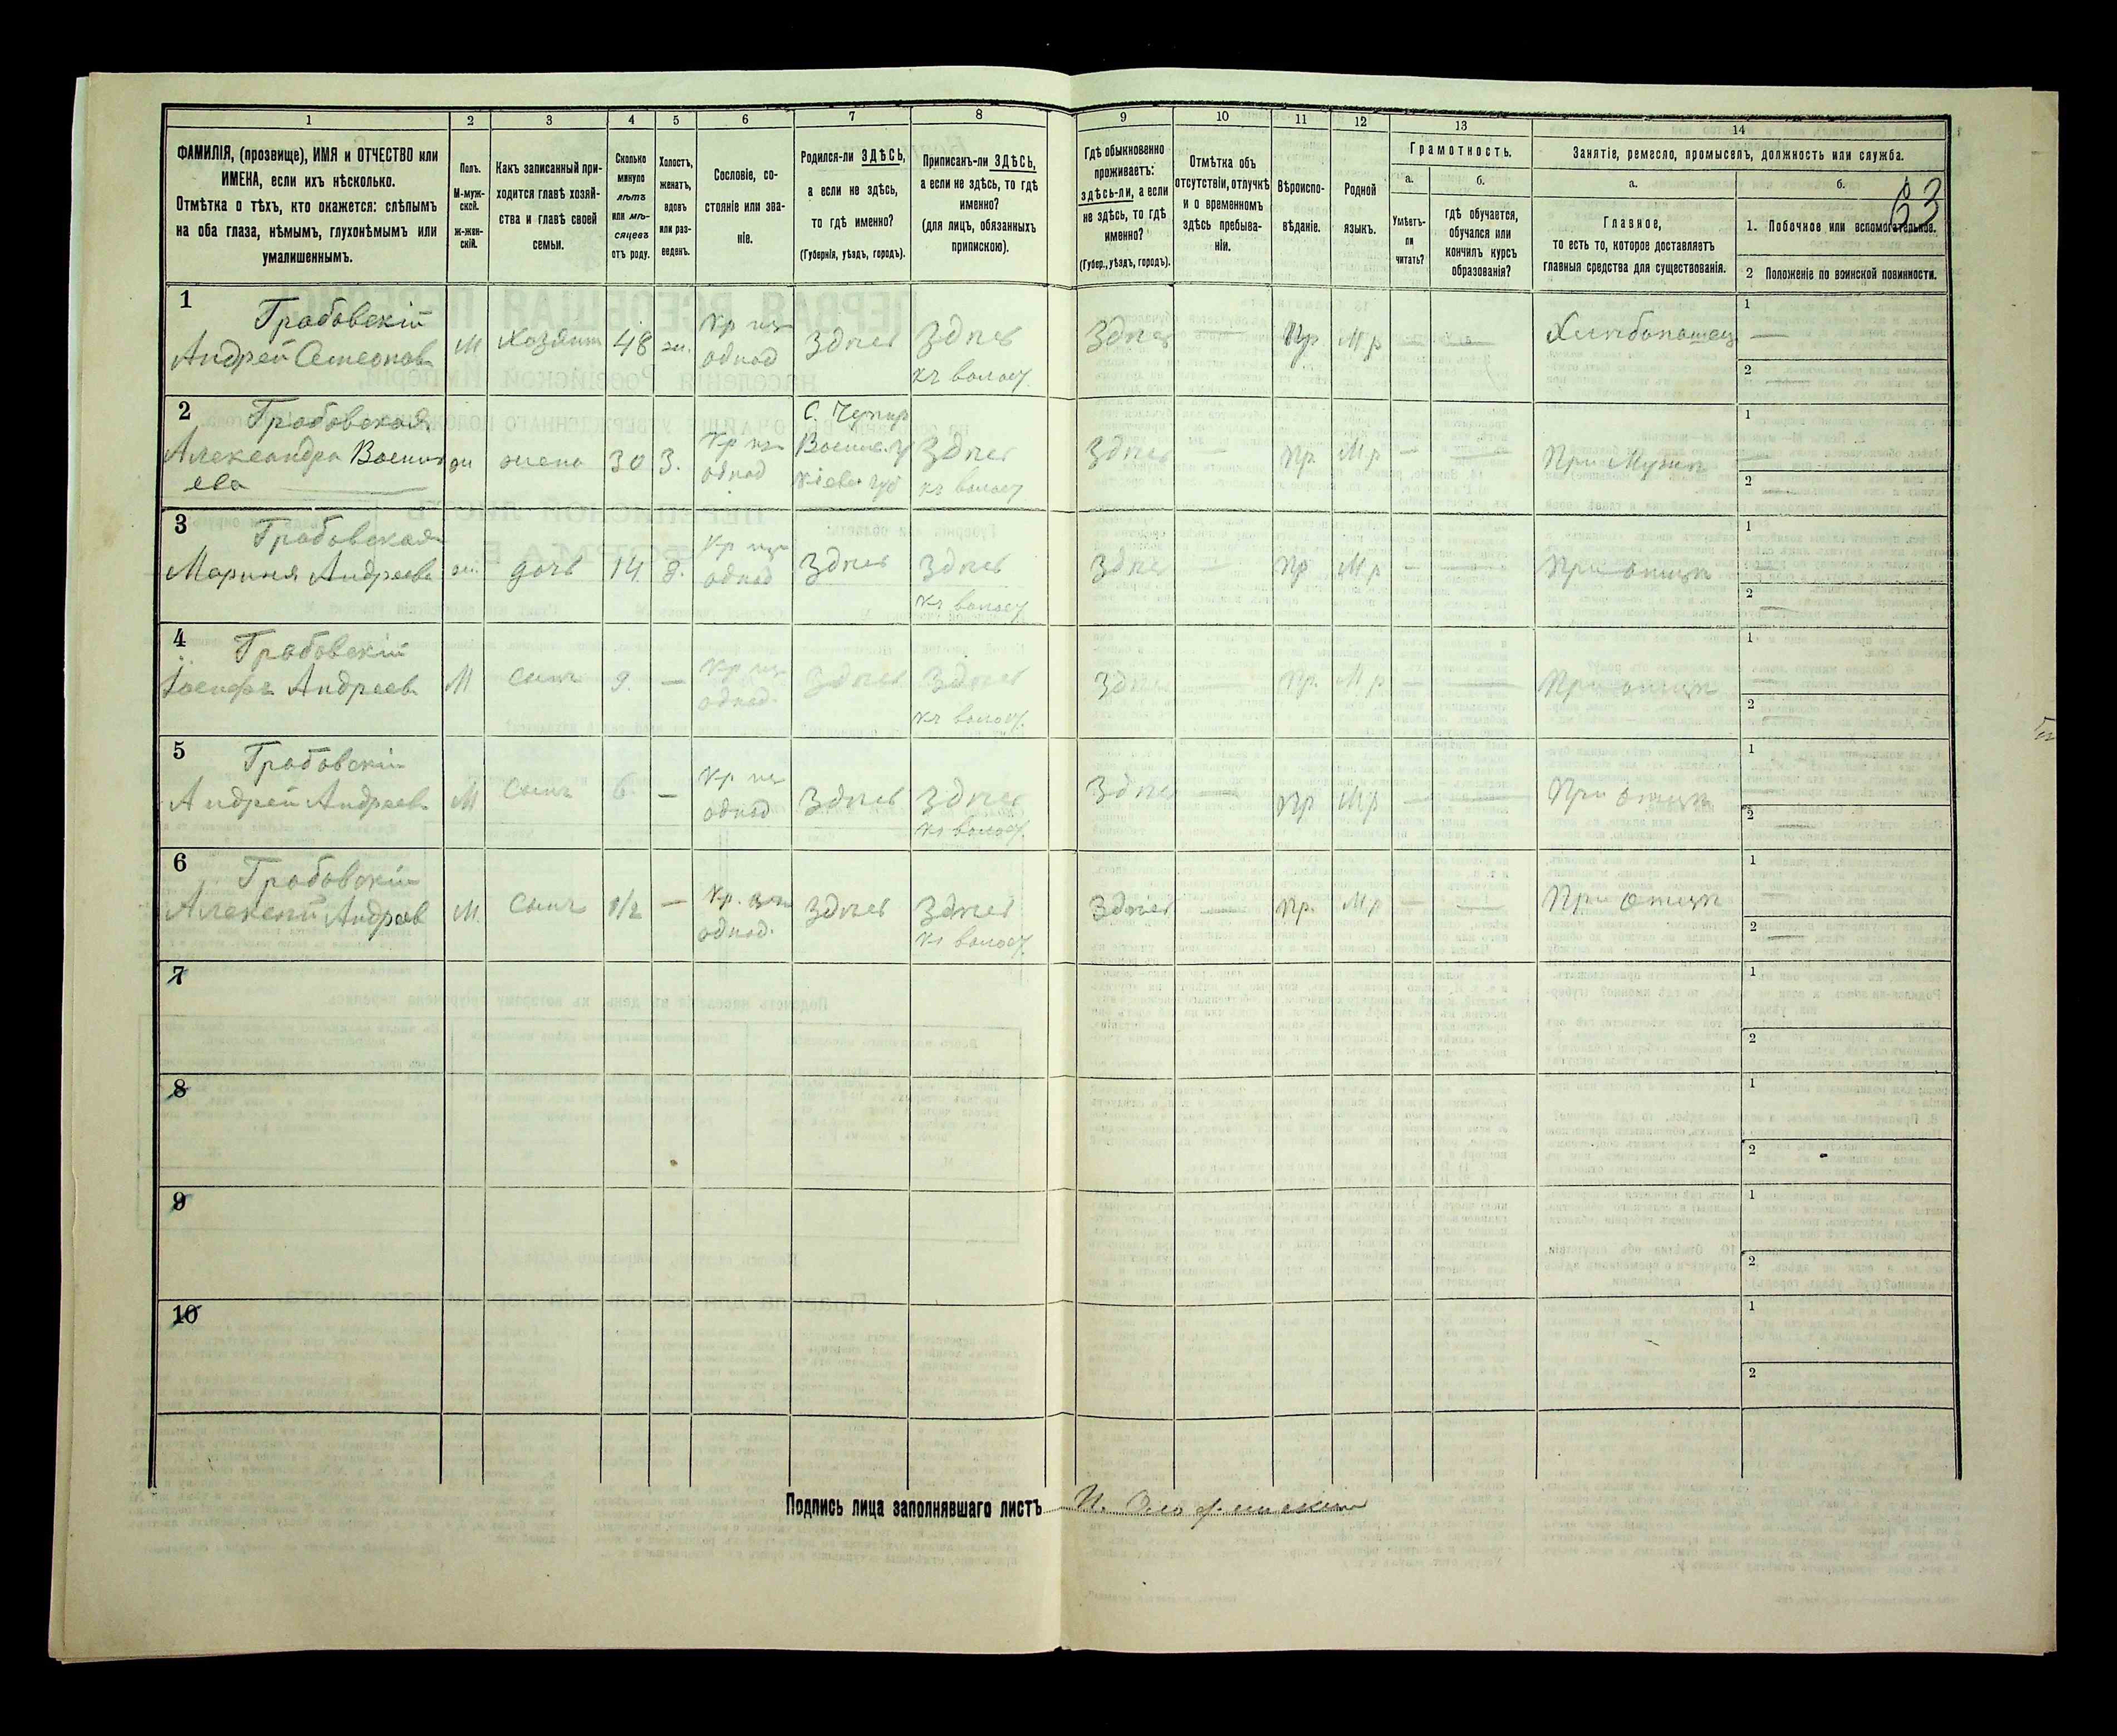 63
1 2 3 4 5 6 7 8 9 10 11 12 13 14
ФАМИЛІЯ, (прозвище), ИМЯ и ОТЧЕСТВО или
ИМЕНА, если ихъ нѣсколько.
Отмѣтка о тѣхъ, кто окажется: слѣпымъ
на оба глаза, нѣмымъ, глухонѣмымъ или
умалишеннымъ.
Полъ.
М-муж-
ской.
Ж-жен-
скій.
Какъ записанный при-
ходится главѣ хозяй-
ства и главѣ своей
семьи.
Сколько
минуло
лѣтъ
или мѣ-
сяцевъ
отъ роду.
Холостъ,
женатъ,
вдовъ
или раз-
веденъ.
Сословіе, со-
стояніе или зва-
ніе.
Родился-ли ЗДѢСЬ,
а если не здѣсь,
то гдѣ именно?
(Губернія, уѣздъ, городъ).
Приписанъ-ли ЗДѢСЬ,
а если не здѣсь, то гдѣ
именно?
(для лицъ, обязанныхъ
припискою).
Гдѣ обыкновенно
проживаетъ:
здѣсь-ли, а если
не здѣсь, то гдѣ
именно?
(Губер., уѣздъ, городъ).
Отмѣтка объ
отсутствіи, отлучкѣ
и о временномъ
здѣсь пребыва-
ніи.
Вѣроиспо-
вѣданіе.
Родной
языкъ.
Грамотность.
а.
Умѣетъ-
ли
читать?
б.
гдѣ обучается,
обучался или
кончилъ курсъ
образованія?
Занятіе, ремесло, промыселъ, должность или служба.
а.
Главное,
то есть то, которое доставляетъ
главныя средства для существованія.
б.
1. Побочное или вспомогательное.
2 Положеніе по воинской повинности.
1
Грабовскій
Андрей
М Хозяинъ 48 ж. Кр
однод
здѣсь здѣсь
къ волост.
Здѣсь — Пр Мр — — — 1
2
2
Грабовская
Александра
жена 30 З. Кр
однод
Кіевс. губ
здѣсь
къ волост
здѣсь — пр. Мр — — При Мужѣ 1
2
3
Грабовская
Марина Андреева
ж. дочь 14 д. Кр
однод
здѣсь здѣсь
къ волост
здѣсь — пр Мр — — При отцѣ 1
2
4
Грабовскій
Іосифъ Андреев
М сынъ 9. — Кр
однод.
здѣсь здѣсь
къ волост.
здѣсь — пр. Мр — — При отцѣ 1
2
5
Грабовскій
Андрей Андреев
М сынъ 6 — Кр
однод
здѣсь здѣсь
къ волост.
здѣсь — пр Мр — — При отцѣ 1
2
6
Грабовскій
Алексѣй Андреев
М. сынъ 1/2 — Кр.
однод.
здѣсь здѣсь
къ волост.
здѣсь — пр. Мр — — При отцѣ 1
2
7 1
2
8 1
2
9 1
2
10 1
2
Подпись лица заполнявшаго листъ